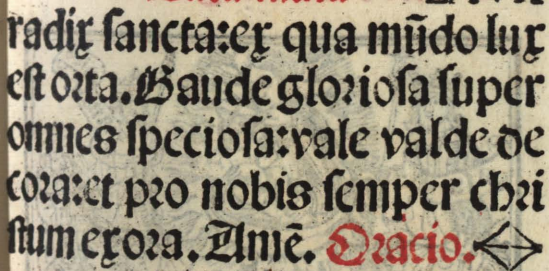 radix sancta:ex qua mūdo lux
est orta. Gaude gloriosa super
omnes speciosa:vale valde de
cora:et pro nobis semper chri
stum exora. Amē. Oracio.